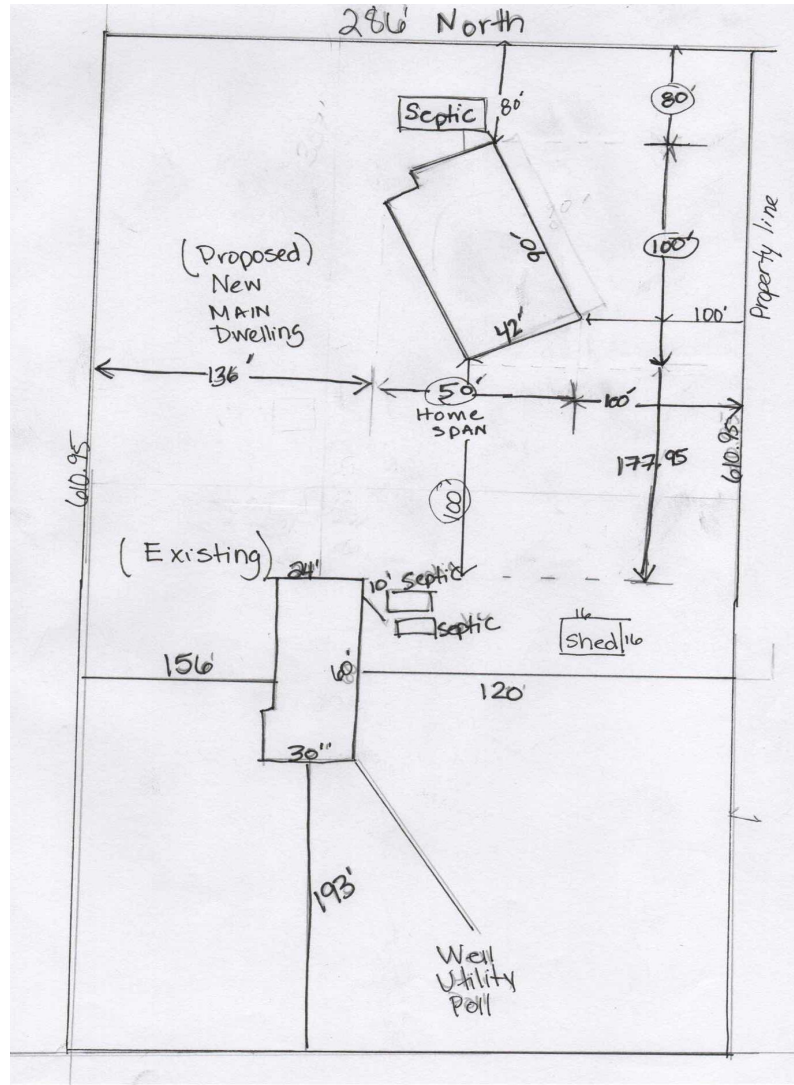 286' North
80'
80'
Septic
100'
90'
42'
100'
Property line
(Proposed)
New
MAIN
Dwelling
136"
50'
Home
SPAN
100'
177.95
610.95
610.95
100'
(Existing)
24'
10' Septic
septic
16
Shed 16
156'
60'
120'
30"
193'
Well
Utility
Poll